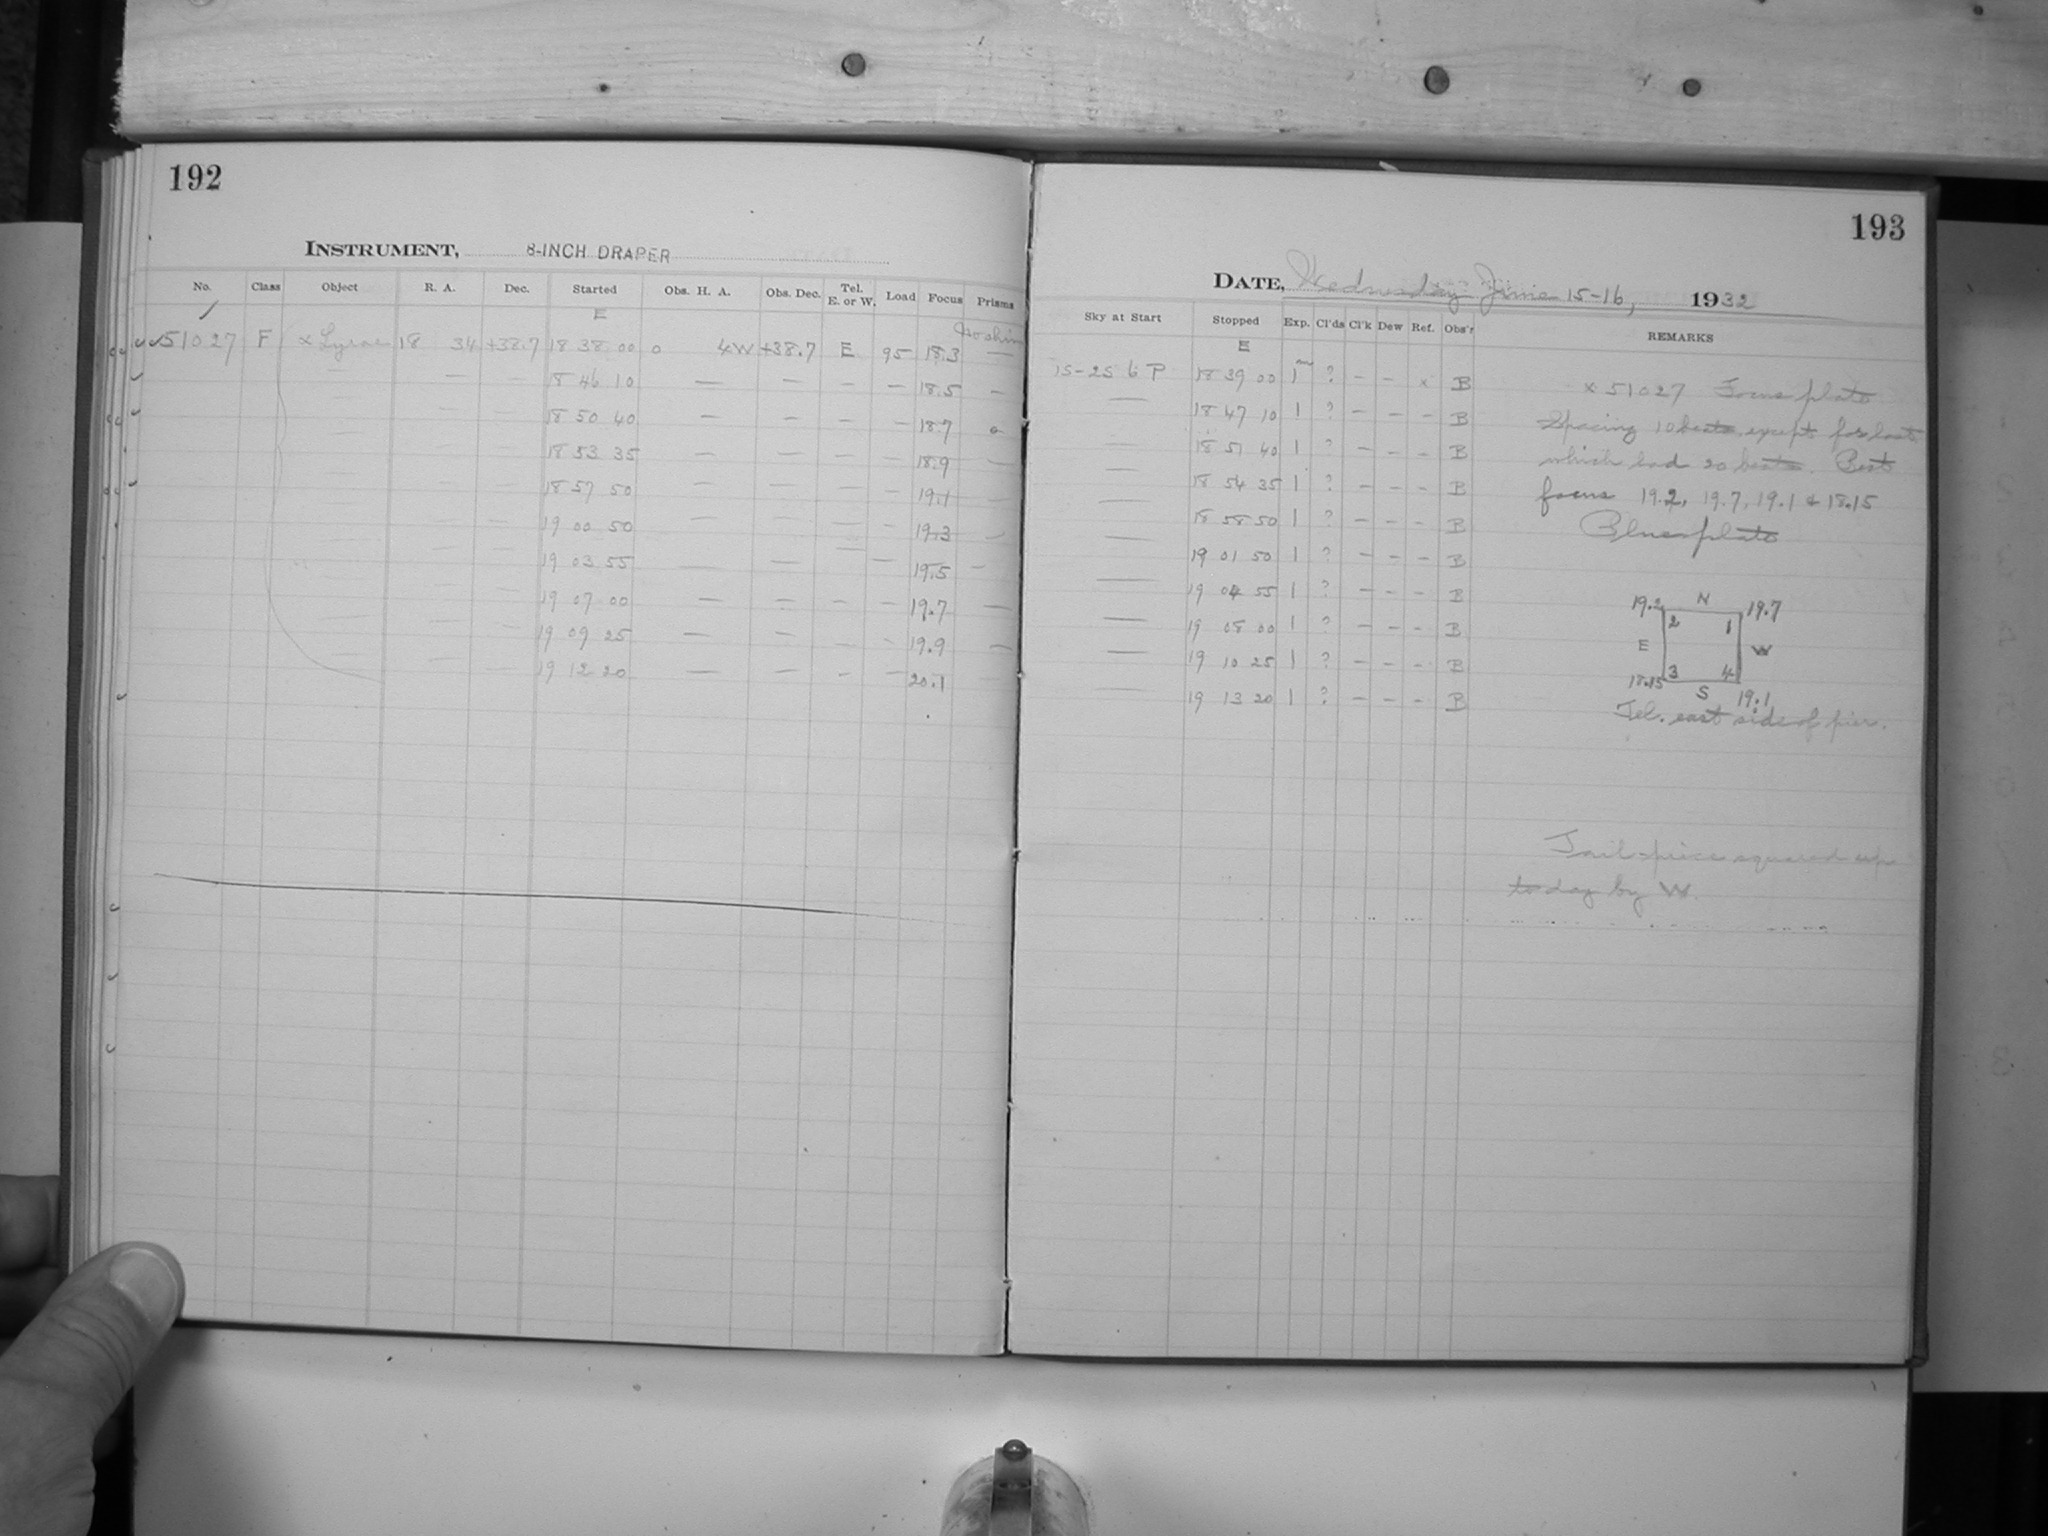 192
INSTRUMENT, 8-INCH DRAPER
No. Class Object R. A. Dec. Started Obs. H. A. Obs. Dec. Tel. E. or W. Load Focus Prisms
E
51027 F α Lyrae 18 34 +38.7 18 38 00 0 4W +38.7 E 95 18.3 —
— — — 18 46 10 — — — — 18.5 —
— — — 18 50 40 — — — — 18.7
— — — 18 53 35 — — — — 18.9 —
— — — 18 57 50 — — — — 19.1 —
— — — 19 00 50 — — — — 19.3 —
— — — 19 03 55 — — — — 19.5 —
— — — 19 07 00 — — — — 19.7 —
— — — 19 09 25 — — — 19.9 —
— — — 19 12 20 — — — — 20.1
193
DATE, Wednesday June 15-16, 1932
Sky at Start Stopped Exp. Cl'ds Cl'k Dew Ref. Obs'r REMARKS
E
15-25 6 P 18 39 00 1m ? — — x B
— 18 47 10 1 ? — — — B
— 18 51 40 1 ? — — — B
— 18 54 35 1 ? — — — B
— 18 58 50 1 ? — — — B
— 19 01 50 1 ? — — — B
— 19 04 55 1 ? — — — B
— 19 08 00 1 ? — — — B
— 19 10 25 1 ? — — — B
— 19 13 20 1 ? — — — B
x 51027 Focus plate
Spacing 10 beats, except for last
which had 20 beats. Best
focus 19.2, 19.7, 19.1 & 18.15
Blue plate
19.2 N 19.7
2 1
E W
3 4
18.15 S 19.1
Tel. east side of pier.
Tail-piece squared up
today by W.